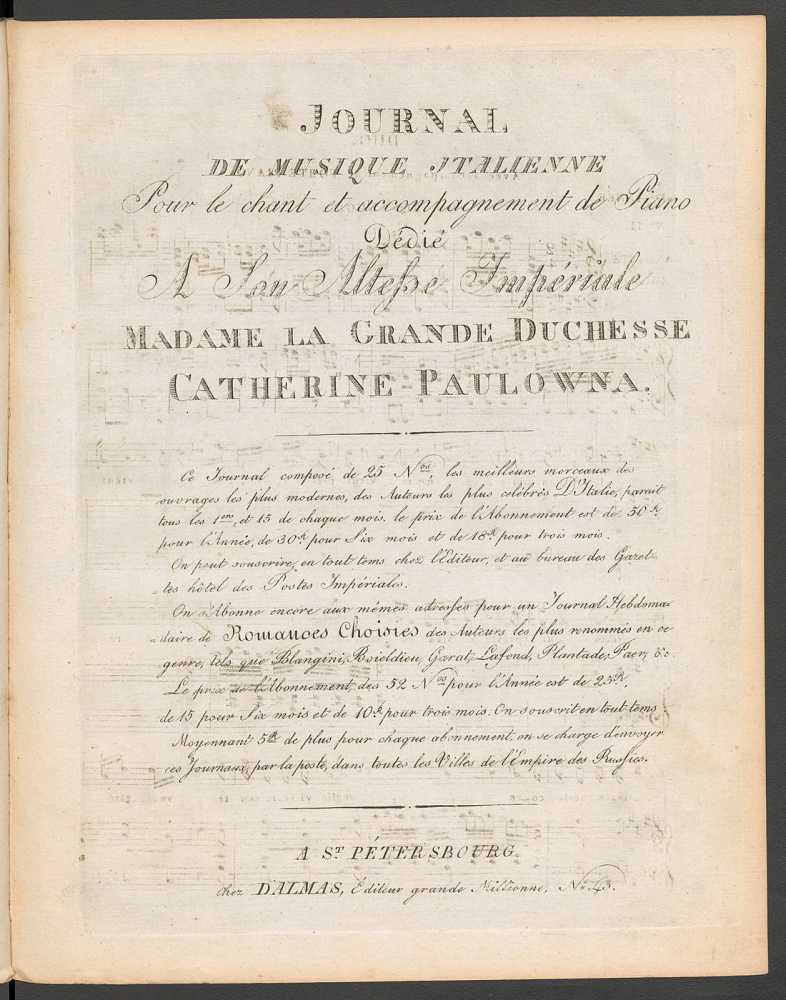 JOURNAL
DE MUSIQUE ITALIENNE
Pour le chant et accompagnement de Piano
Dédié
A Son Altesse Impériale
MADAME LA GRANDE DUCHESSE
CATHERINE PAULOWNA.
Ce Journal composé de 25 Nos, les meilleurs morceaux des
ouvrages les plus modernes, des Auteurs les plus celébres D'Italie, parait
tous les 1ers, et 15 de chaque mois. le prix de l'Abonnement est de 50 R
pour l'Année, de 30R pour Six mois et de 18R pour trois mois.
On peut souscrire, en tout tems chez l'Editeur, et au bureau des Gazet-
tes hôtel des Postes Impériales.
On s'Abonne encore aux mêmes adresses pour un Journal Hebdoma-
-daire de Romances Choisies des Auteurs les plus renommés en ce
genre, tels que Blangini, Boieldieu, Garat, Lafond, Plantade, Paer, &c.
Le prix de l'Abonnement des 52 Nos pour l'Année est de 25R,
de 15 pour Six mois et de 10R pour trois mois. On souscrit en tout tems
Moyennant 5R de plus pour chaque abonnement, on se charge d'envoyer
ces Journaux, par la poste, dans toutes les Villes de l'Empire des Russies.
A ST PÉTERSBOURG
chez DALMAS, Éditeur grande Millionne, No 43.